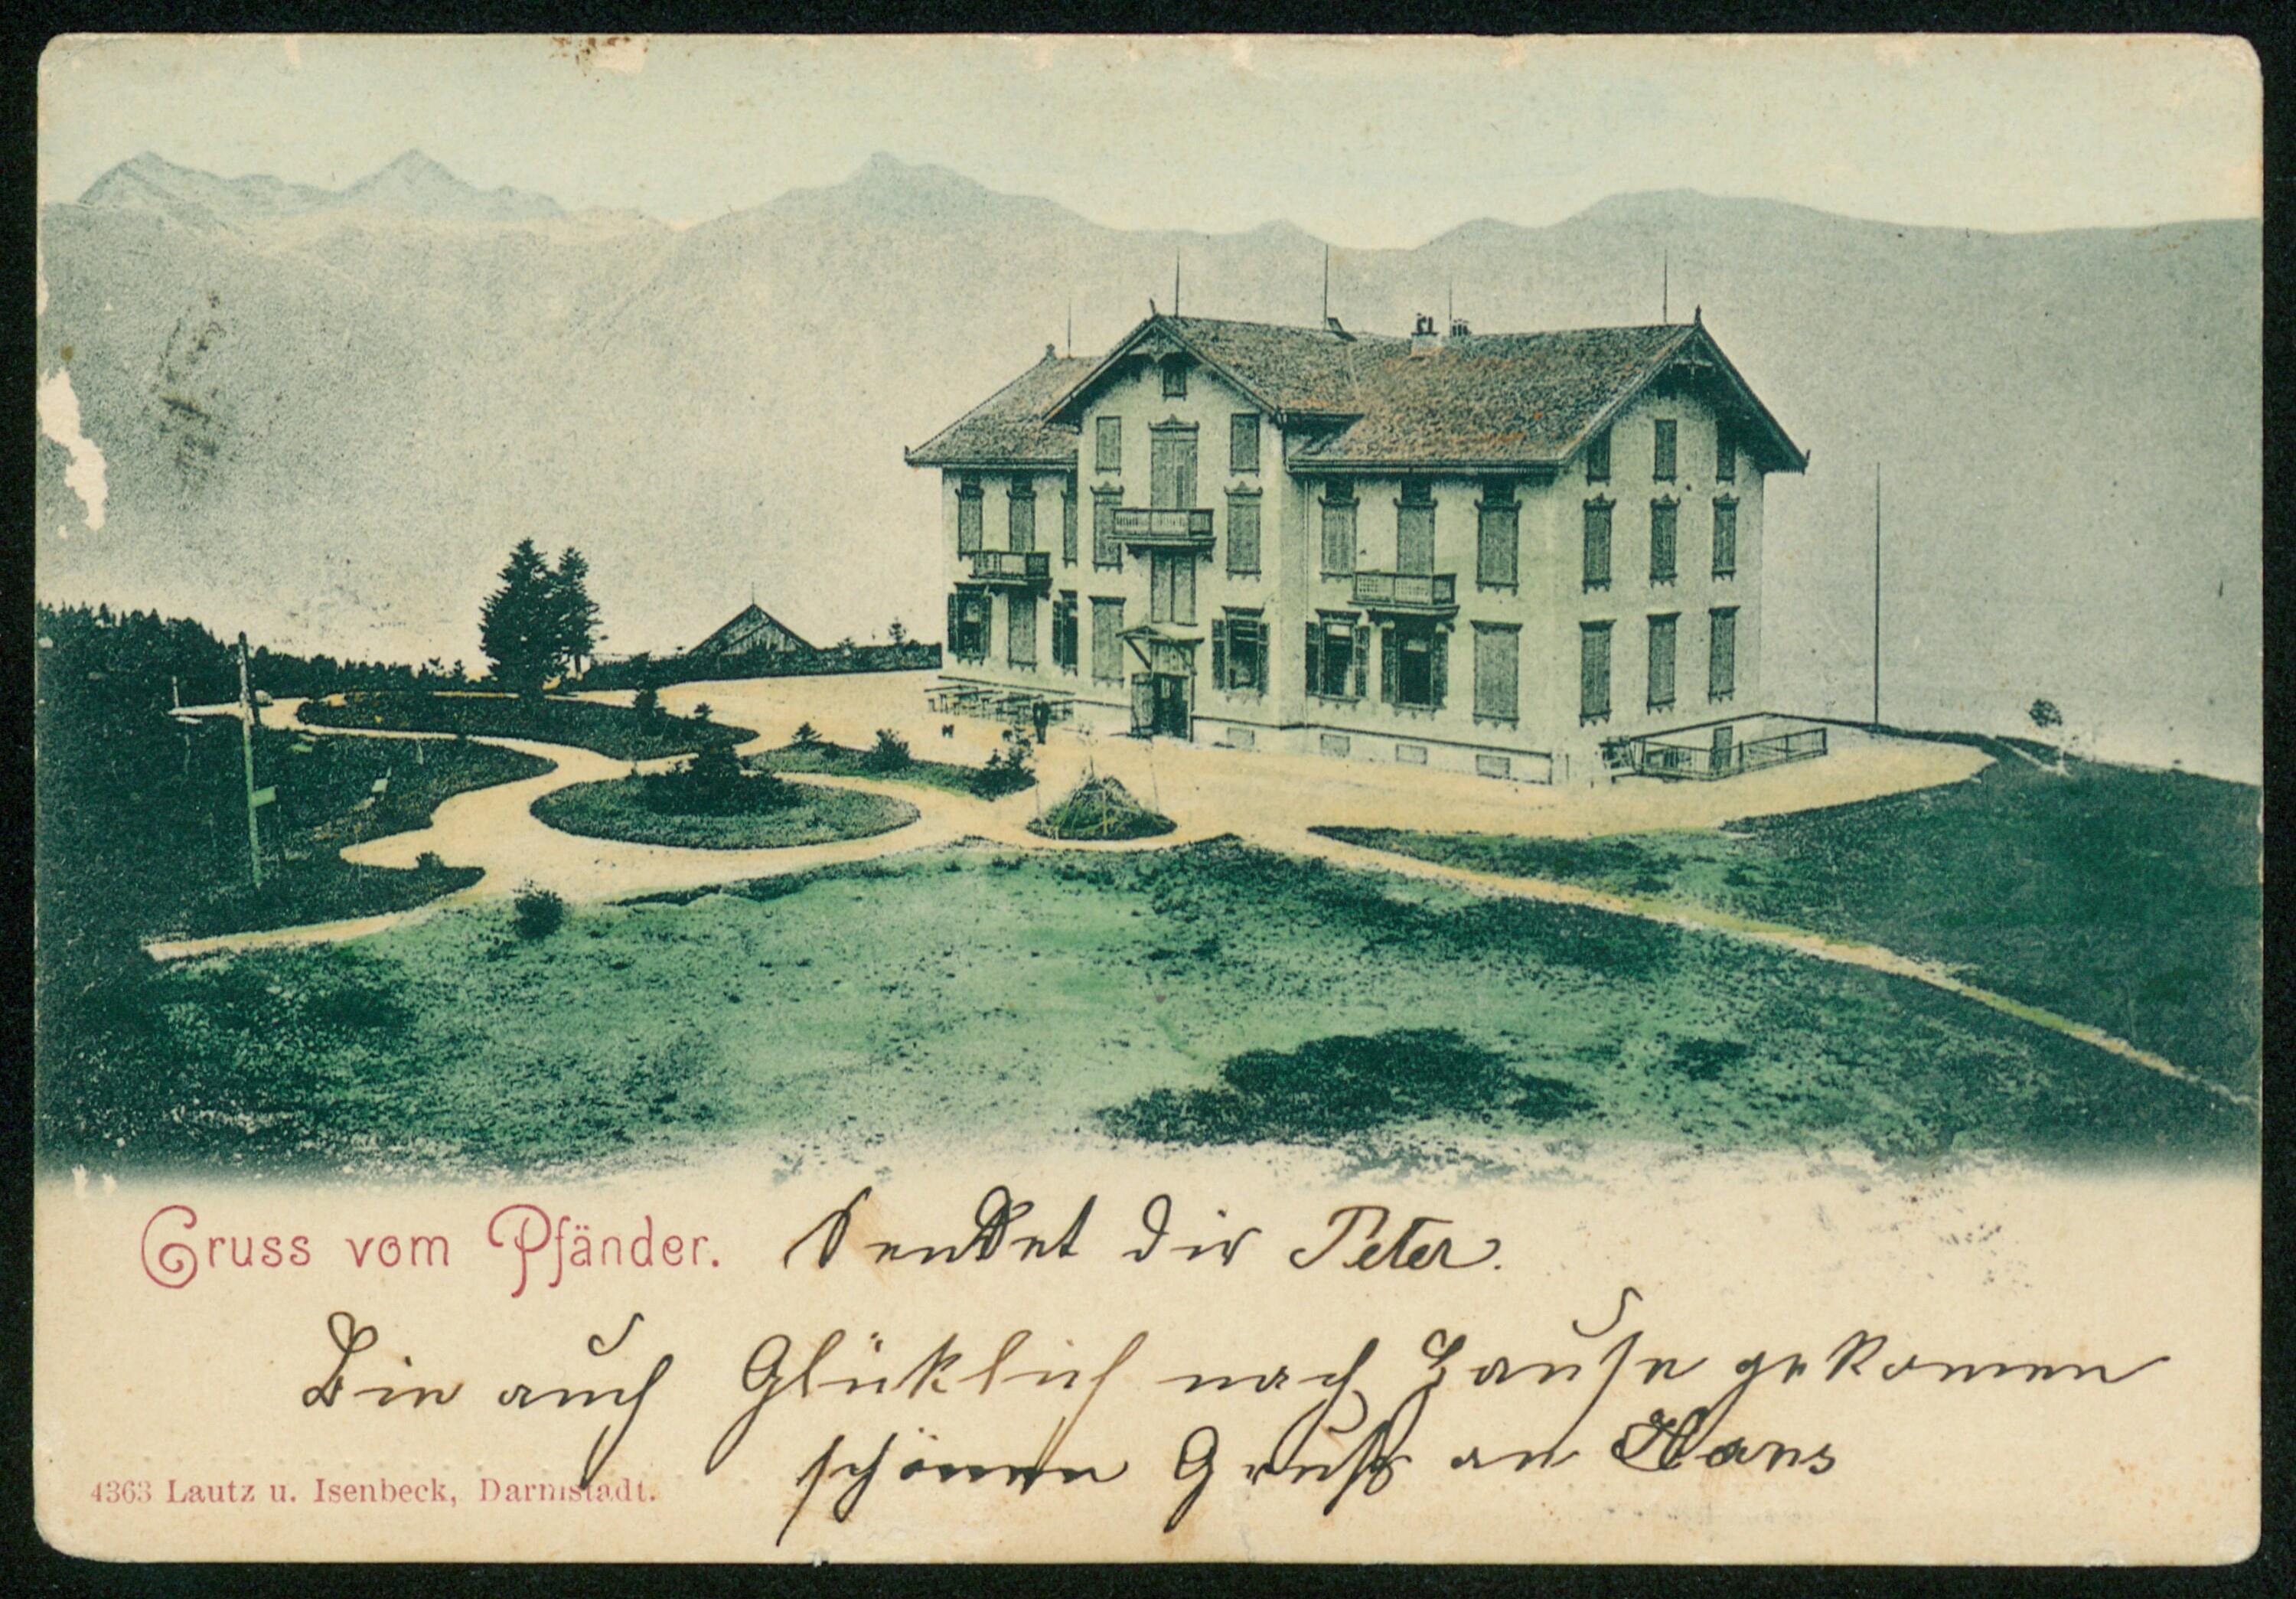 Gruss vom Pfänder. Sendet dir Peter.
Bin auch Glücklich nach Hause gekomen
schönen Gruß an Hans
4363 Lautz u. Isenbeck, Darmstadt.